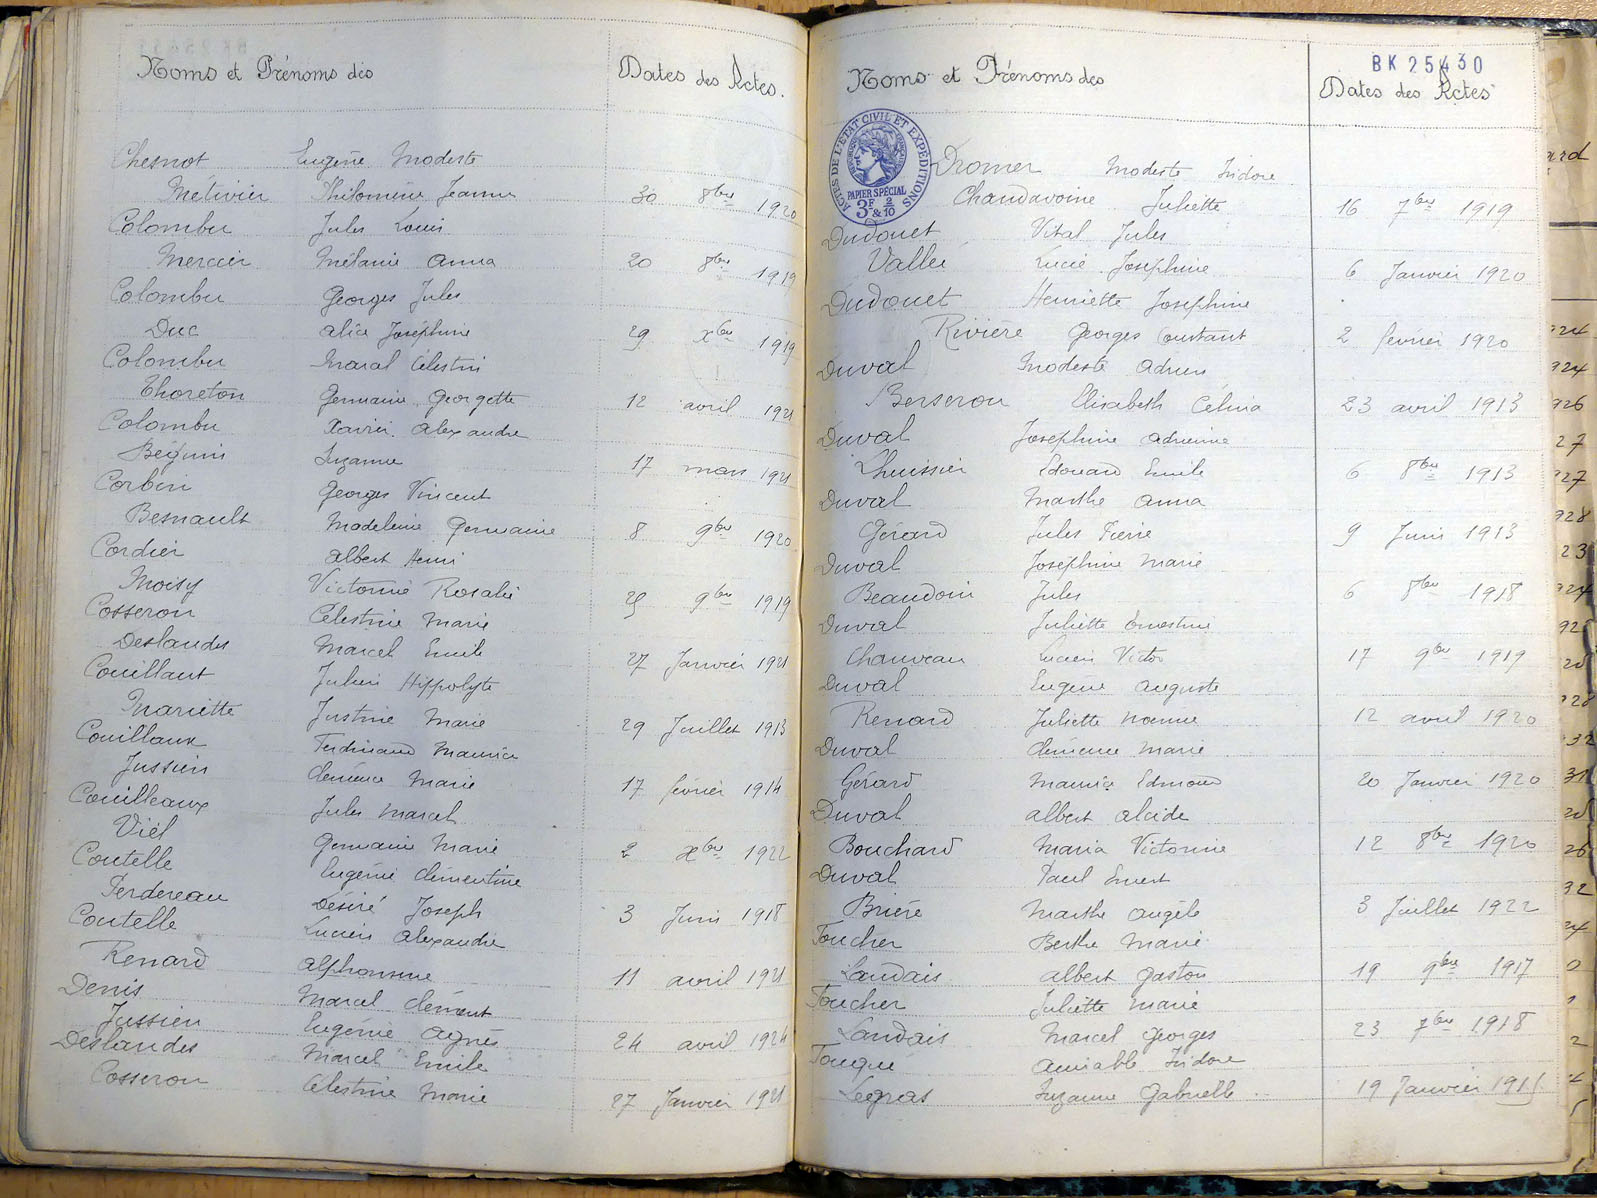 Noms et Prénoms des Dates des Actes.
Chesnot Eugène Modeste
Métivier Philomène Jeanne 30 8bre 1920
Colombu Jules Louis
Mercier Mélanie Anna 20 8bre 1919
Colombu Georges Jules
Duc Alice Joséphine 29 Xbre 1919
Colombu Maral Célestin
Thoreton Germaine Georgette 12 avril 1921
Colombu Xavier Alexandre
Béguin Suzanne 17 mars 1921
Corbin Georges Vincent
Besnault Madeleine Germaine 8 9bre 1920
Cordier Albert Henri
Moisy Victorine Rosalie 25 9bre 1919
Cosseron Célestine Marie
Deslandes Marcel Emile 27 Janvier 1921
Couillant Julien Hippolyte
Mariette Justine Marie 29 Juillet 1913
Couillaux Ferdinand Maurice
Jussien Clémence Marie 17 février 1914
Couilleaux Jules Marcel
Viel Germaine Marie 2 Xbre 1922
Coutelle Eugénie Clémentine
Perdereau Désiré Joseph 3 Juin 1918
Coutelle Lucien Alexandre
Renard Alphonsine 11 avril 1921
Denis Marcel Clément
Jussien Eugénie Agnès 24 avril 1924
Deslandes Marcel Emile
Cosseron Célestine Marie 27 Janvier 1921
BK 25430
Noms et Prénoms des Dates des Actes
ACTES DE L'ÉTAT CIVIL ET EXPÉDITIONS
PAPIER SPÉCIAL
3F & 2/10
Dromer Modeste Isidore
Chandavoine Juliette 16 7bre 1919
Dudouet Vital Jules
Vallée Lucie Joséphine 6 Janvier 1920
Dudouet Henriette Joséphine
Rivière Georges Constant 2 février 1920
Duval Modeste Adrien
Berseron Elisabeth Célina 23 avril 1913
Duval Joséphine Adrienne
Lhuissier Edouard Emile 6 8bre 1913
Duval Marthe Anna
Gérard Jules Pierre 9 Juin 1913
Duval Joséphine Marie
Beaudoin Jules 6 8bre 1918
Duval Juliette Ernestine
Chauveau Lucien Victor 17 9bre 1919
Duval Eugène Auguste
Renard Juliette 12 avril 1920
Duval Clémence Marie
Gérard Maurice Edmond 20 Janvier 1920
Duval Albert Alcide
Bouchard Maria Victorine 12 8bre 1920
Duval Paul Ernest
Brière Marthe Angèle 3 Juillet 1922
Foucher Berthe Marie
Landais Albert Gaston 19 9bre 1917
Foucher Juliette Marie
Landais Marcel Georges 23 7bre 1918
Fouque Aimable Isidore
Legras Suzanne Gabrielle 19 Janvier